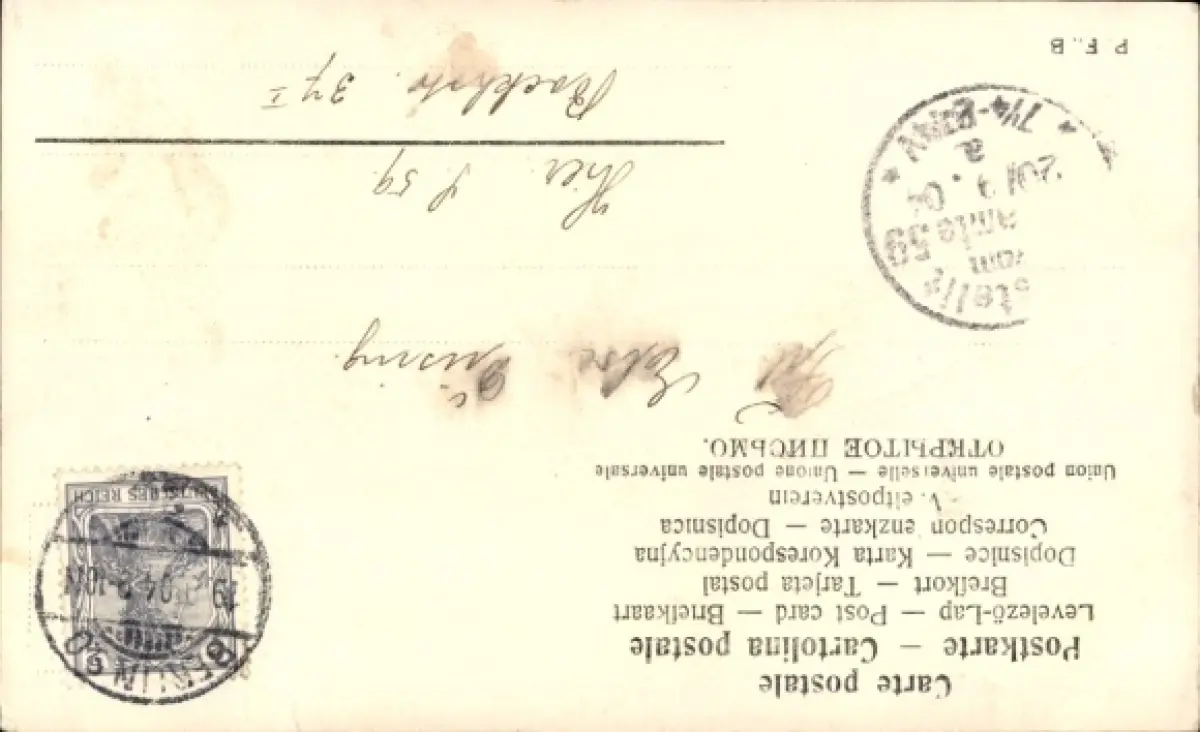 Carte postale
Postkarte — Cartolina postale
Levelező-Lap — Post card — Briefkaart
Brefkort — Tarjeta postal
Dopisnice — Karta Korespondencyjna
Correspondenzkarte — Dopisnica
Weltpostverein
Union postale universelle — Unione postale universale
ОТКРЫТОЕ ПИСЬМО.
DEUTSCHES REICH
BERLIN
19 04 9-10N
Frl. Else
Hier S. 59.
37 I
Bestellt
vom
Amte 59
20/ 9. 04
a
7¼-8½V
P. F. B